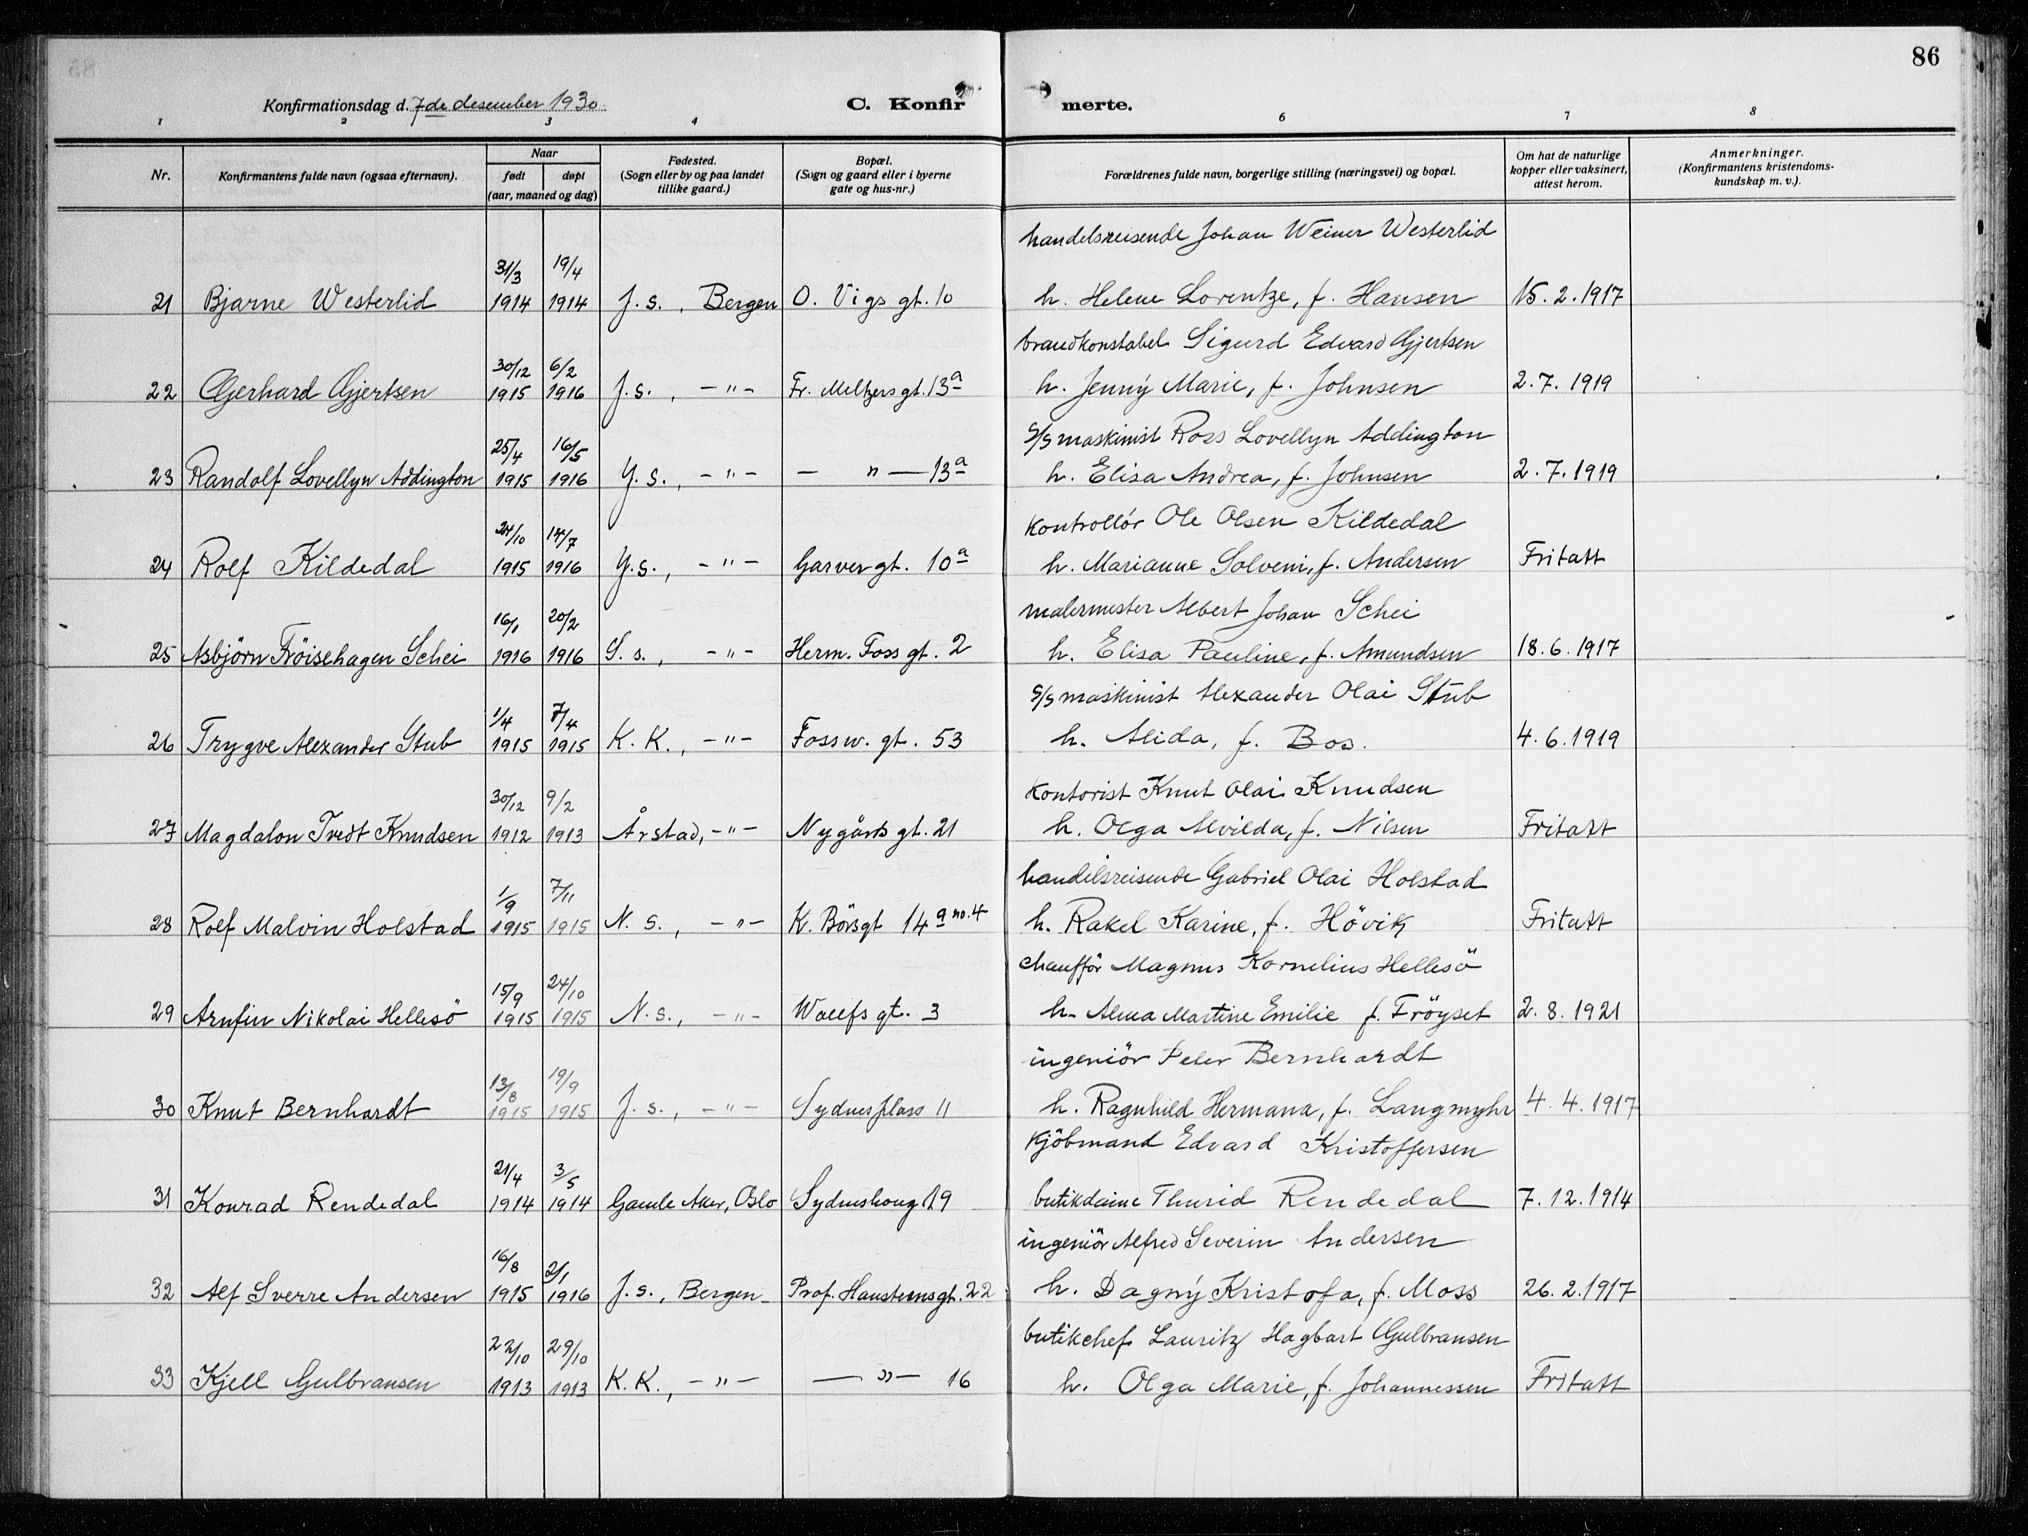 86
Konfirmationsdag d. 7de desember 1930
C. Konfir merte.
1 2 3 4 6 7 8
Nr.
Konfirmantens fulde navn (ogsaa efternavn).
Naar
født døpt
(aar, maaned og dag)
Fødested.
(Sogn eller by og paa landet
tillike gaard.)
Bopæl.
(Sogn og gaard eller i byerne
gate og hus-nr.)
Forældrenes fulde navn, borgerlige stilling (næringsvei) og bopæl.
Om hat de naturlige
kopper eller vaksinert,
attest herom.
Anmerkninger.
(Konfirmantens kristendoms-
kundskap m. v.).
handelsreisende Johan Weiner Westerlid
31/3 19/4
21 Bjarne Westerlid 1914 1914 J. s., Bergen O. Vigs gt. 10 h. Helene Lorentze, f. Hansen 15.2.1917
brandkonstabel Sigurd Edvard Gjertsen
30/12 6/2
22 Gerhard Gjertsen 1915 1916 J. s., -"- Fr. Meltzers gt. 13a h. Jenny Marie, f. Johnsen 2.7.1919
S/S maskinist Ross Lovellyn Addington
25/4 16/5
23 Randolf Lovellyn Addington 1915 1916 J. s., -"- — " — 13a h. Elisa Andrea, f. Johnsen 2.7.1919
kontrollör Ole Olsen Kildedal
24/10 14/7
24 Rolf Kildedal 1915 1916 J. s., -"- Garver gt. 10a h. Marianne Solveni, f. Andersen Fritatt
malermester Albert Johan Schei
16/1 20/2
25 Asbjörn Fröisehagen Schei 1916 1916 S. s., -"- Herm. Foss gt. 2 h. Elisa Pauline, f. Amundsen 18.6.1917
S/S maskinist Alexander Olai Stub
1/4 7/4
26 Trygve Alexander Stub 1915 1915 K. K., -"- Fossw. gt. 53 h. Alida, f. Bos. 4.6.1919
kontorist Knut Olai Knudsen
30/12 9/2
27 Magdalon Tvedt Knudsen 1912 1913 Årstad, -"- Nygårds gt. 21 h. Olga Alvilda, f. Nilsen Fritatt
handelsreisende Gabriel Olai Holstad
1/9 7/11
28 Rolf Malvin Holstad 1915 1915 N. s., -"- K. Börsgt 14a no. 4 h. Rakel Karine, f. Hövik Fritatt
chaufför Magnus Kornelius Hellesö
15/9 24/10
29 Arnfin Nikolai Hellesö 1915 1915 N. s., -"- Wolffs gt. 3 h. Alma Martine Emilie f. Fröyset 2.8.1921
ingeniör Peter Bernhardt
13/8 19/9
30 Knut Bernhardt 1915 1915 J. s., -"- Sydnesplass 11 h. Ragnhild Hermana, f. Langmyhr 4.4.1917
kjöbmand Edvard Kristoffersen
21/4 3/5
31 Konrad Rendedal 1914 1914 Gamle Aker, Oslo Sydneshaug 19 butikdame Thurid Rendedal 7.12.1914
ingeniör Alfred Severin Andersen
16/8 2/1
32 Alf Sverre Andersen 1915 1916 J. s., Bergen Prof. Hansteens gt. 22 h. Dagny Kristofa, f. Moss 26.2.1917
butikchef Lauritz Hagbart Gulbransen
22/10 29/10
33 Kjell Gulbransen 1913 1913 K. K., -"- — " — 16 h. Olga Marie, f. Johannessen Fritatt